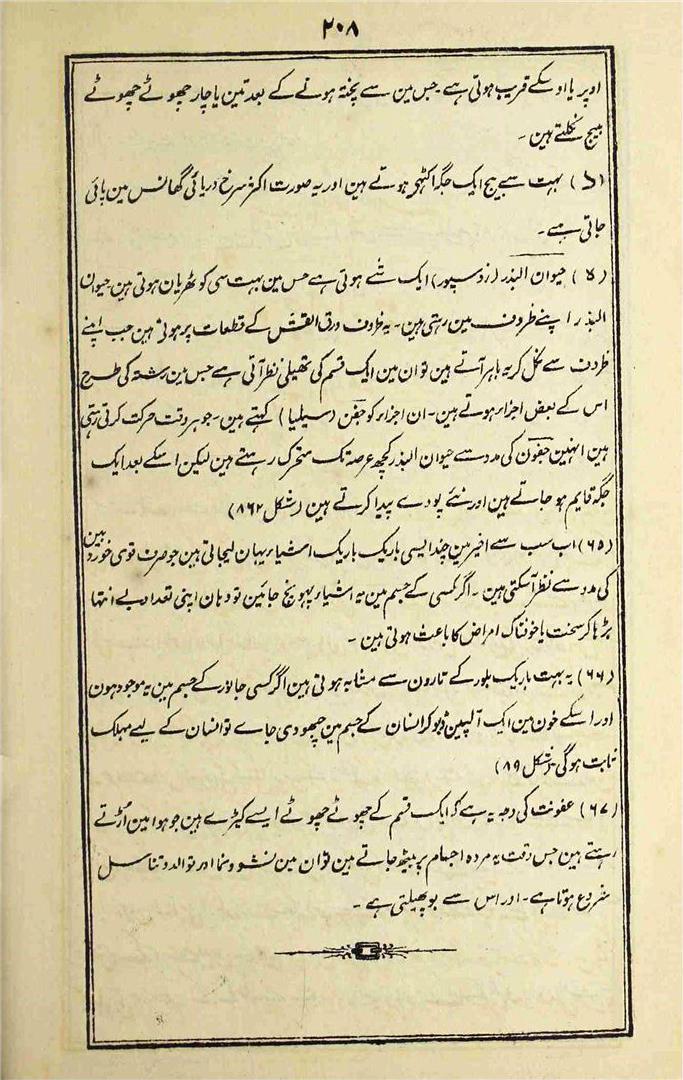 ۲۰۸
اوپر یا اوسکے قریب ہوتی ہے۔ جس مین سے پختہ ہونے کے بعد تین یا چار چھوٹے چھوٹے
بیج نکلتے ہین۔
(د) بہت سے بیج ایک جگہ اکٹھے ہوتے ہین اور یہ صورت اکثر سرخ دریائی گھانس مین پائی
جاتی ہے۔
(ہ) حیوان البذر (زوسپور) ایک شے ہوتی ہے جس مین بہت سی کوٹھریان ہوتی ہین۔ حیوان
البذر اپنے ظروف مین رہتی ہین۔ یہ ظروف ورق القش کے قطعات پر ہوتی ہین جب اپنے
ظروف سے نکل کر یہ باہر آتے ہین تو ان مین ایک قسم کی تھیلی نظر آتی ہے جس مین رشتہ کی طرح
اس کے بعض اجزاء ہوتے ہین۔ ان اجزاء کو جفن (سیلیا) کہتے ہین۔ جو ہر وقت حرکت کرتی رہتی
ہین انہین جفون کی مدد سے حیوان البذر کچھ عرصہ تک متحرک رہتے ہین لیکن اسکے بعد ایک
جگہ قایم ہو جاتے ہین اور نئے پودے پیدا کرتے ہین (شکل ۸۶۲)
(۶۵) اب سب سے اخیر مین چند ایسی باریک باریک اشیاء یہان لیجاتی ہین جو صرف قوی خوردبین
کی مدد سے نظر آسکتی ہین۔ اگر کسی کے جسم مین یہ اشیاء پہونچ جائین تو وہان اپنی تعداد بے انتہا
بڑہا کر سخت یا خوفناک امراض کا باعث ہوتی ہین۔
(۶۶) یہ بہت باریک بلور کے تارون سے مشابہ ہوتی ہین اگر کسی جانور کے جسم مین یہ موجود ہون
اور اسکے خون مین ایک آلپین ڈبو کر انسان کے جسم مین چبھو دی جاے تو انسان کے لیے مہلک
ثابت ہوگی۔ (شکل ۸۹)
(۶۷) عفونت کی وجہ یہ ہے کہ ایک قسم کے چھوٹے چھوٹے ایسے کیڑے ہین جو ہوا مین اُڑتے
رہتے ہین جس وقت یہ مردہ اجسام پر بیٹھ جاتے ہین تو ان مین نشو و نما اور توالد و تناسل
شروع ہوتا ہے۔ اور اس سے بو پھیلتی ہے۔